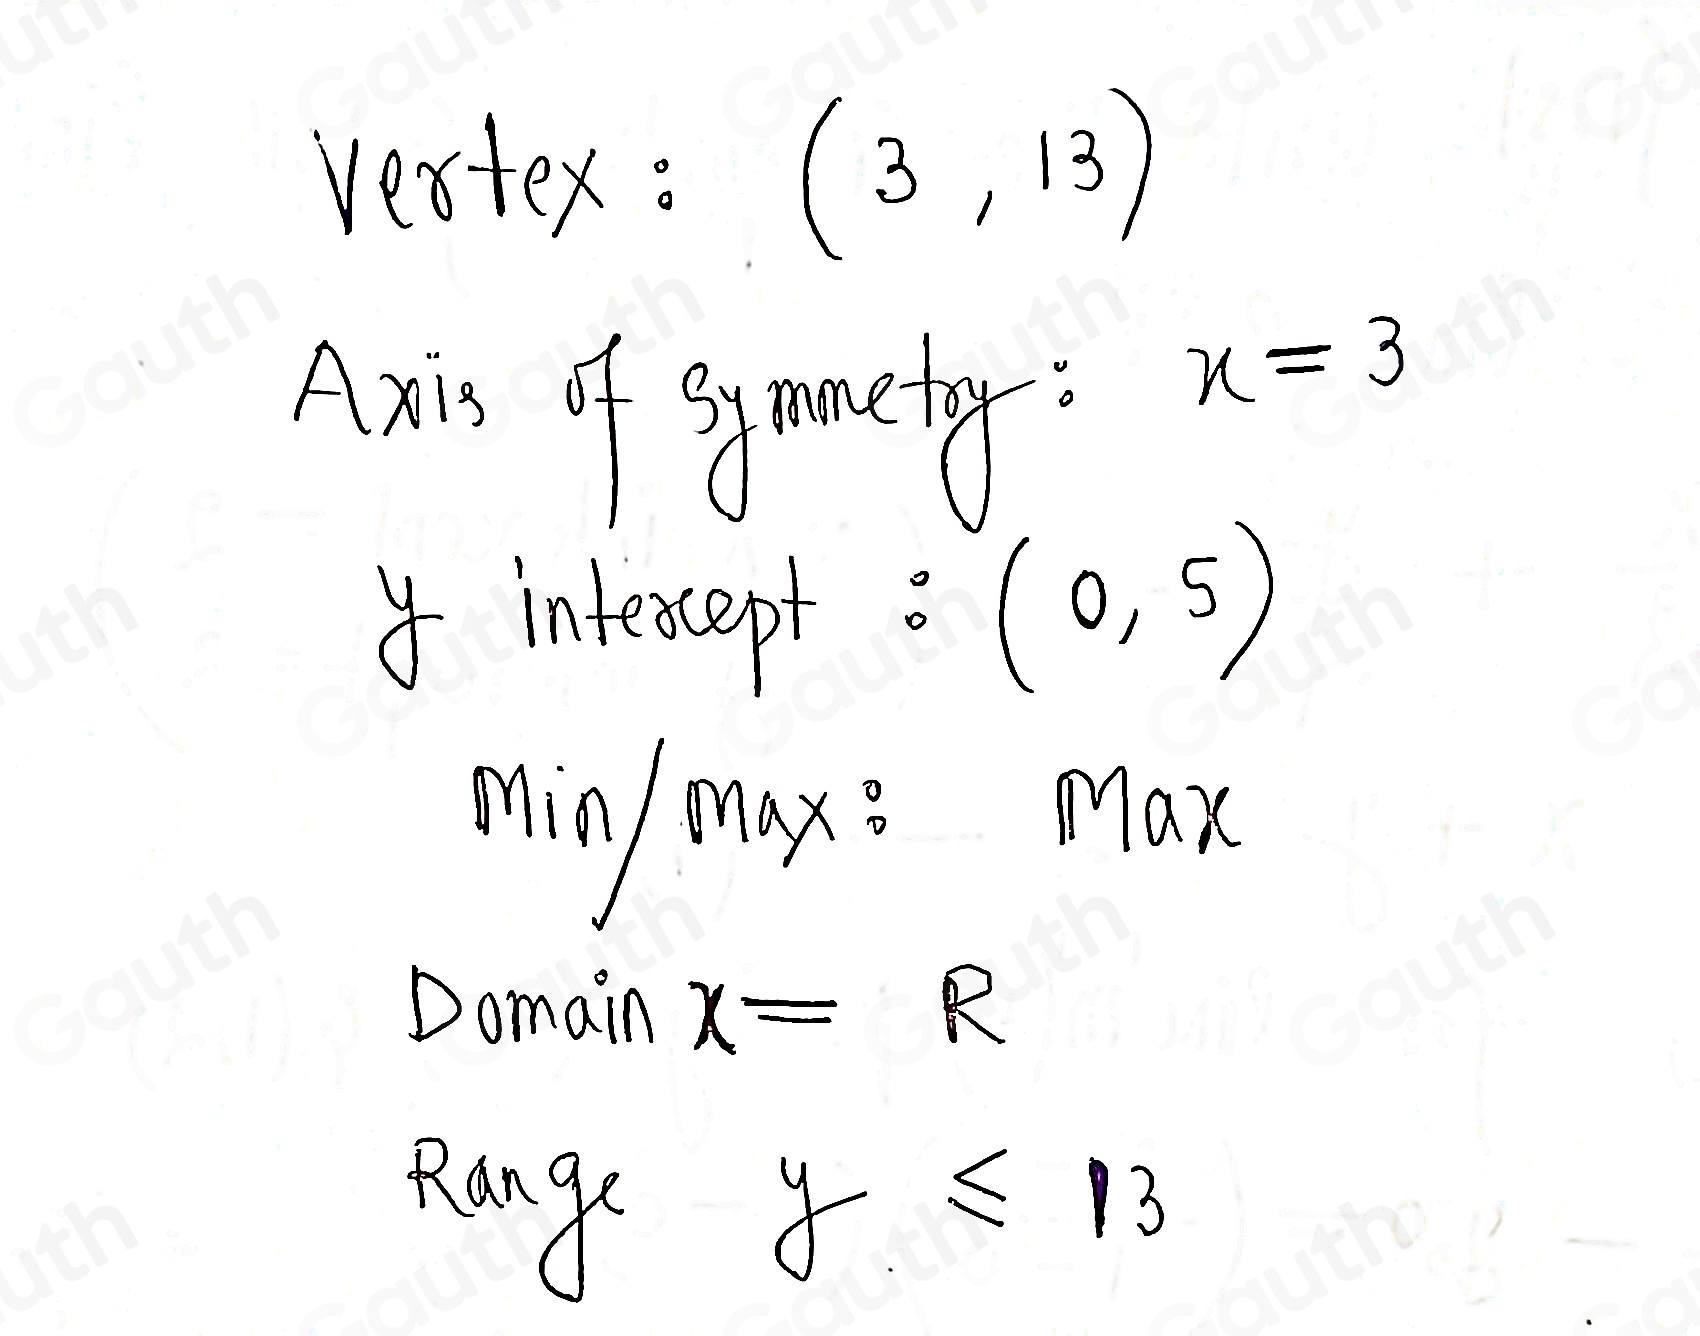 Vertex: (3, 13)
Axis of symmetry: x = 3
y intercept : (0, 5)
Min/Max: Max
Domain x = R
Range y ≤ 13